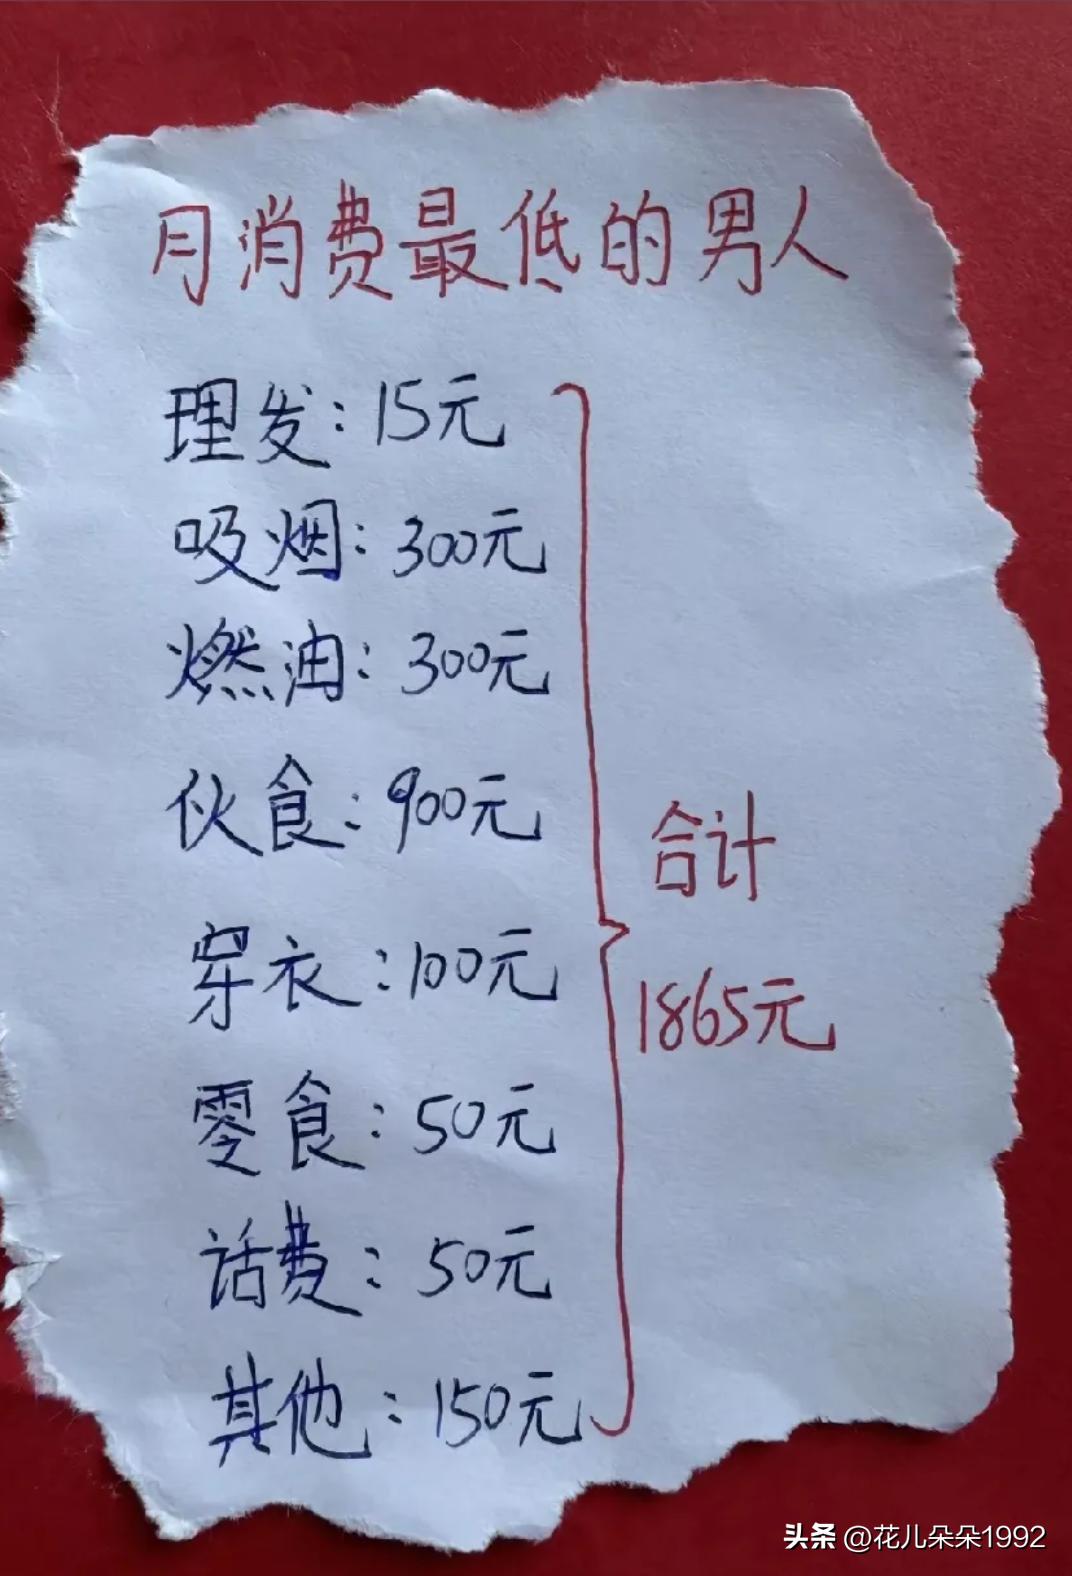 月消费最低的男人
理发：15元
吸烟：300元
燃油：300元
伙食：900元
穿衣：100元
零食：50元
话费：50元
其他：150元
合计
1865元
头条 @花儿朵朵1992